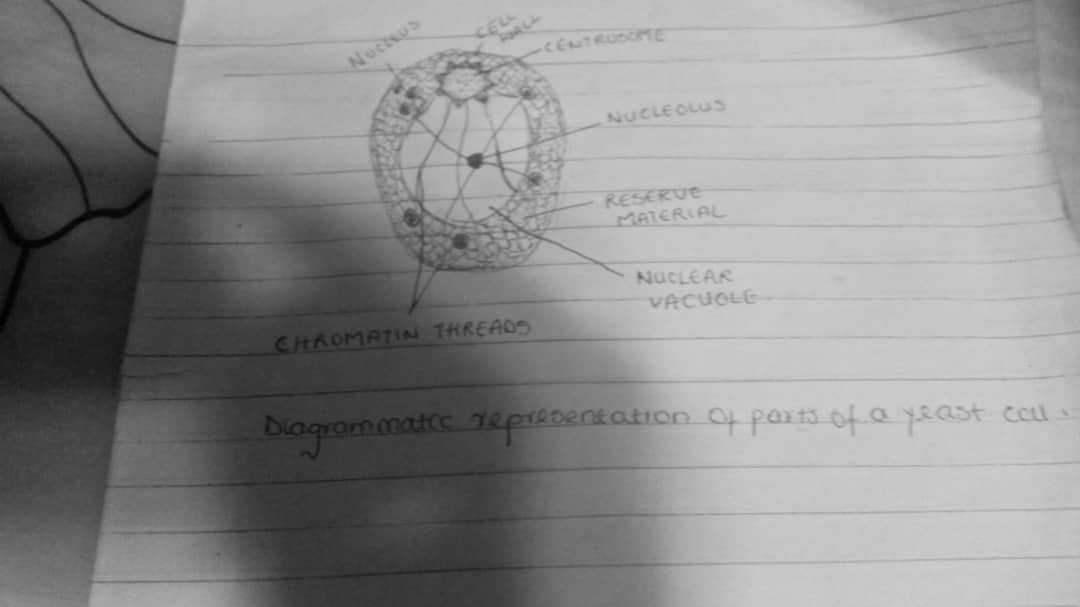 NUCLEUS
CELL
WALL
CENTROSOME
NUCLEOLUS
RESERVE
MATERIAL
NUCLEAR
VACUOLE
CHROMATIN THREADS
Diagrammatic representation of parts of a yeast cell.